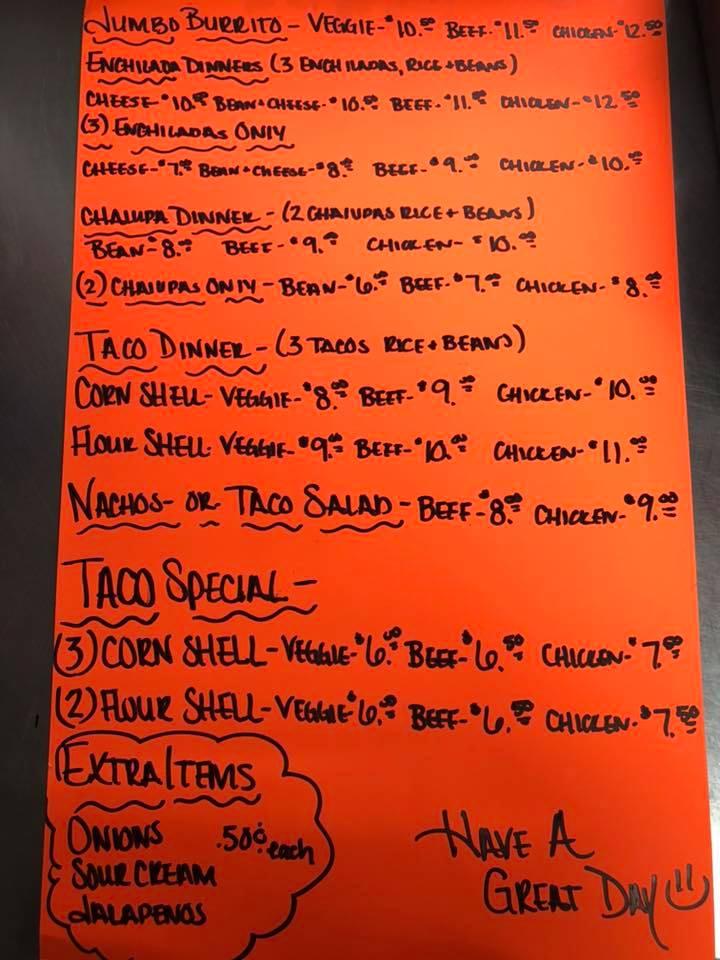 JUMBO BURRITO - VEGGIE - $10.50 BEEF - $11.50 CHICKEN - $12.50
ENCHILADA DINNERS (3 ENCHILADAS, RICE + BEANS)
CHEESE - $10.50 BEAN + CHEESE - $10.50 BEEF - $11.50 CHICKEN - $12.50
(3) ENCHILADAS ONLY
CHEESE - $7.00 BEAN + CHEESE - $8.00 BEEF - $9.00 CHICKEN - $10.00
CHALUPA DINNER - (2 CHALUPAS RICE + BEANS)
BEAN - $8.00 BEEF - $9.00 CHICKEN - $10.00
(2) CHALUPAS ONLY - BEAN - $6.00 BEEF - $7.00 CHICKEN - $8.00
TACO DINNER - (3 TACOS RICE + BEANS)
CORN SHELL - VEGGIE - $8.00 BEEF - $9.00 CHICKEN - $10.00
FLOUR SHELL - VEGGIE - $9.00 BEEF - $10.00 CHICKEN - $11.00
NACHOS - OR TACO SALAD - BEEF - $8.00 CHICKEN - $9.00
TACO SPECIAL -
(3) CORN SHELL - VEGGIE - $6.00 BEEF - $6.50 CHICKEN - $7.50
(2) FLOUR SHELL - VEGGIE $6.00 BEEF - $6.50 CHICKEN - $7.50
EXTRA ITEMS
ONIONS .50¢ each
SOUR CREAM
JALAPENOS
HAVE A
GREAT DAY